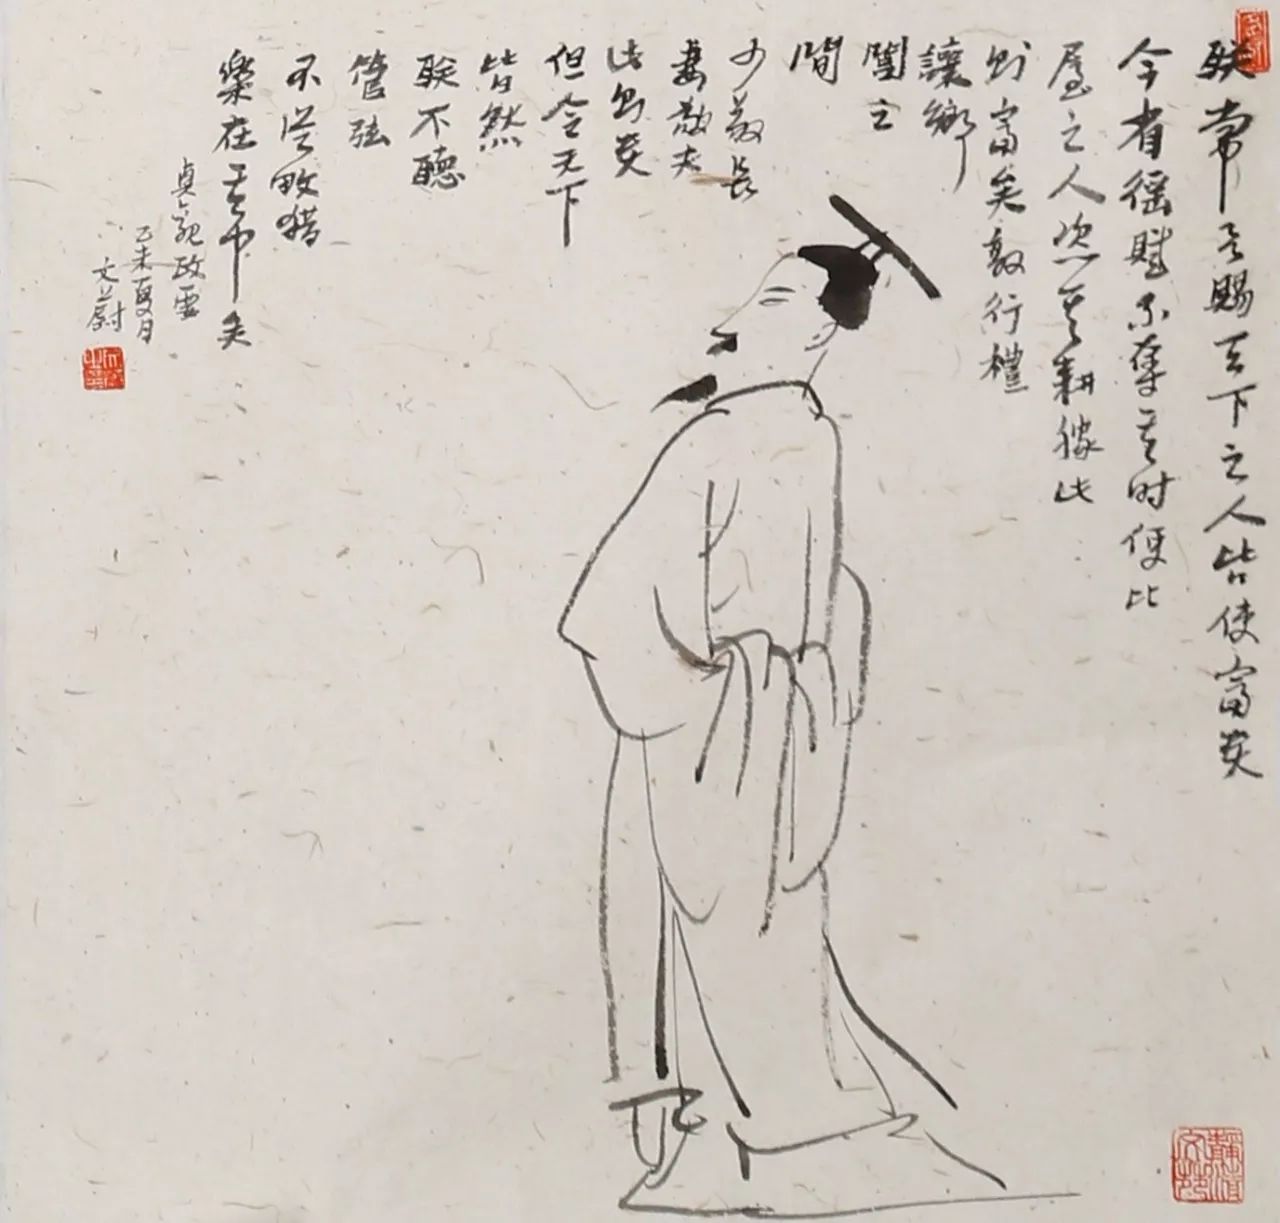 朕常賜天下之人皆使富貴
今省徭賦不奪其時使比
屋之人恣其耕稼此
則富矣敦行禮
讓鄉
閭之
間
少敬長
妻敬夫
此則貴
但令天下
皆然
朕不聽
管弦
不從畋猎
樂在其中矣
貞觀政要
乙未夏月
文蔚